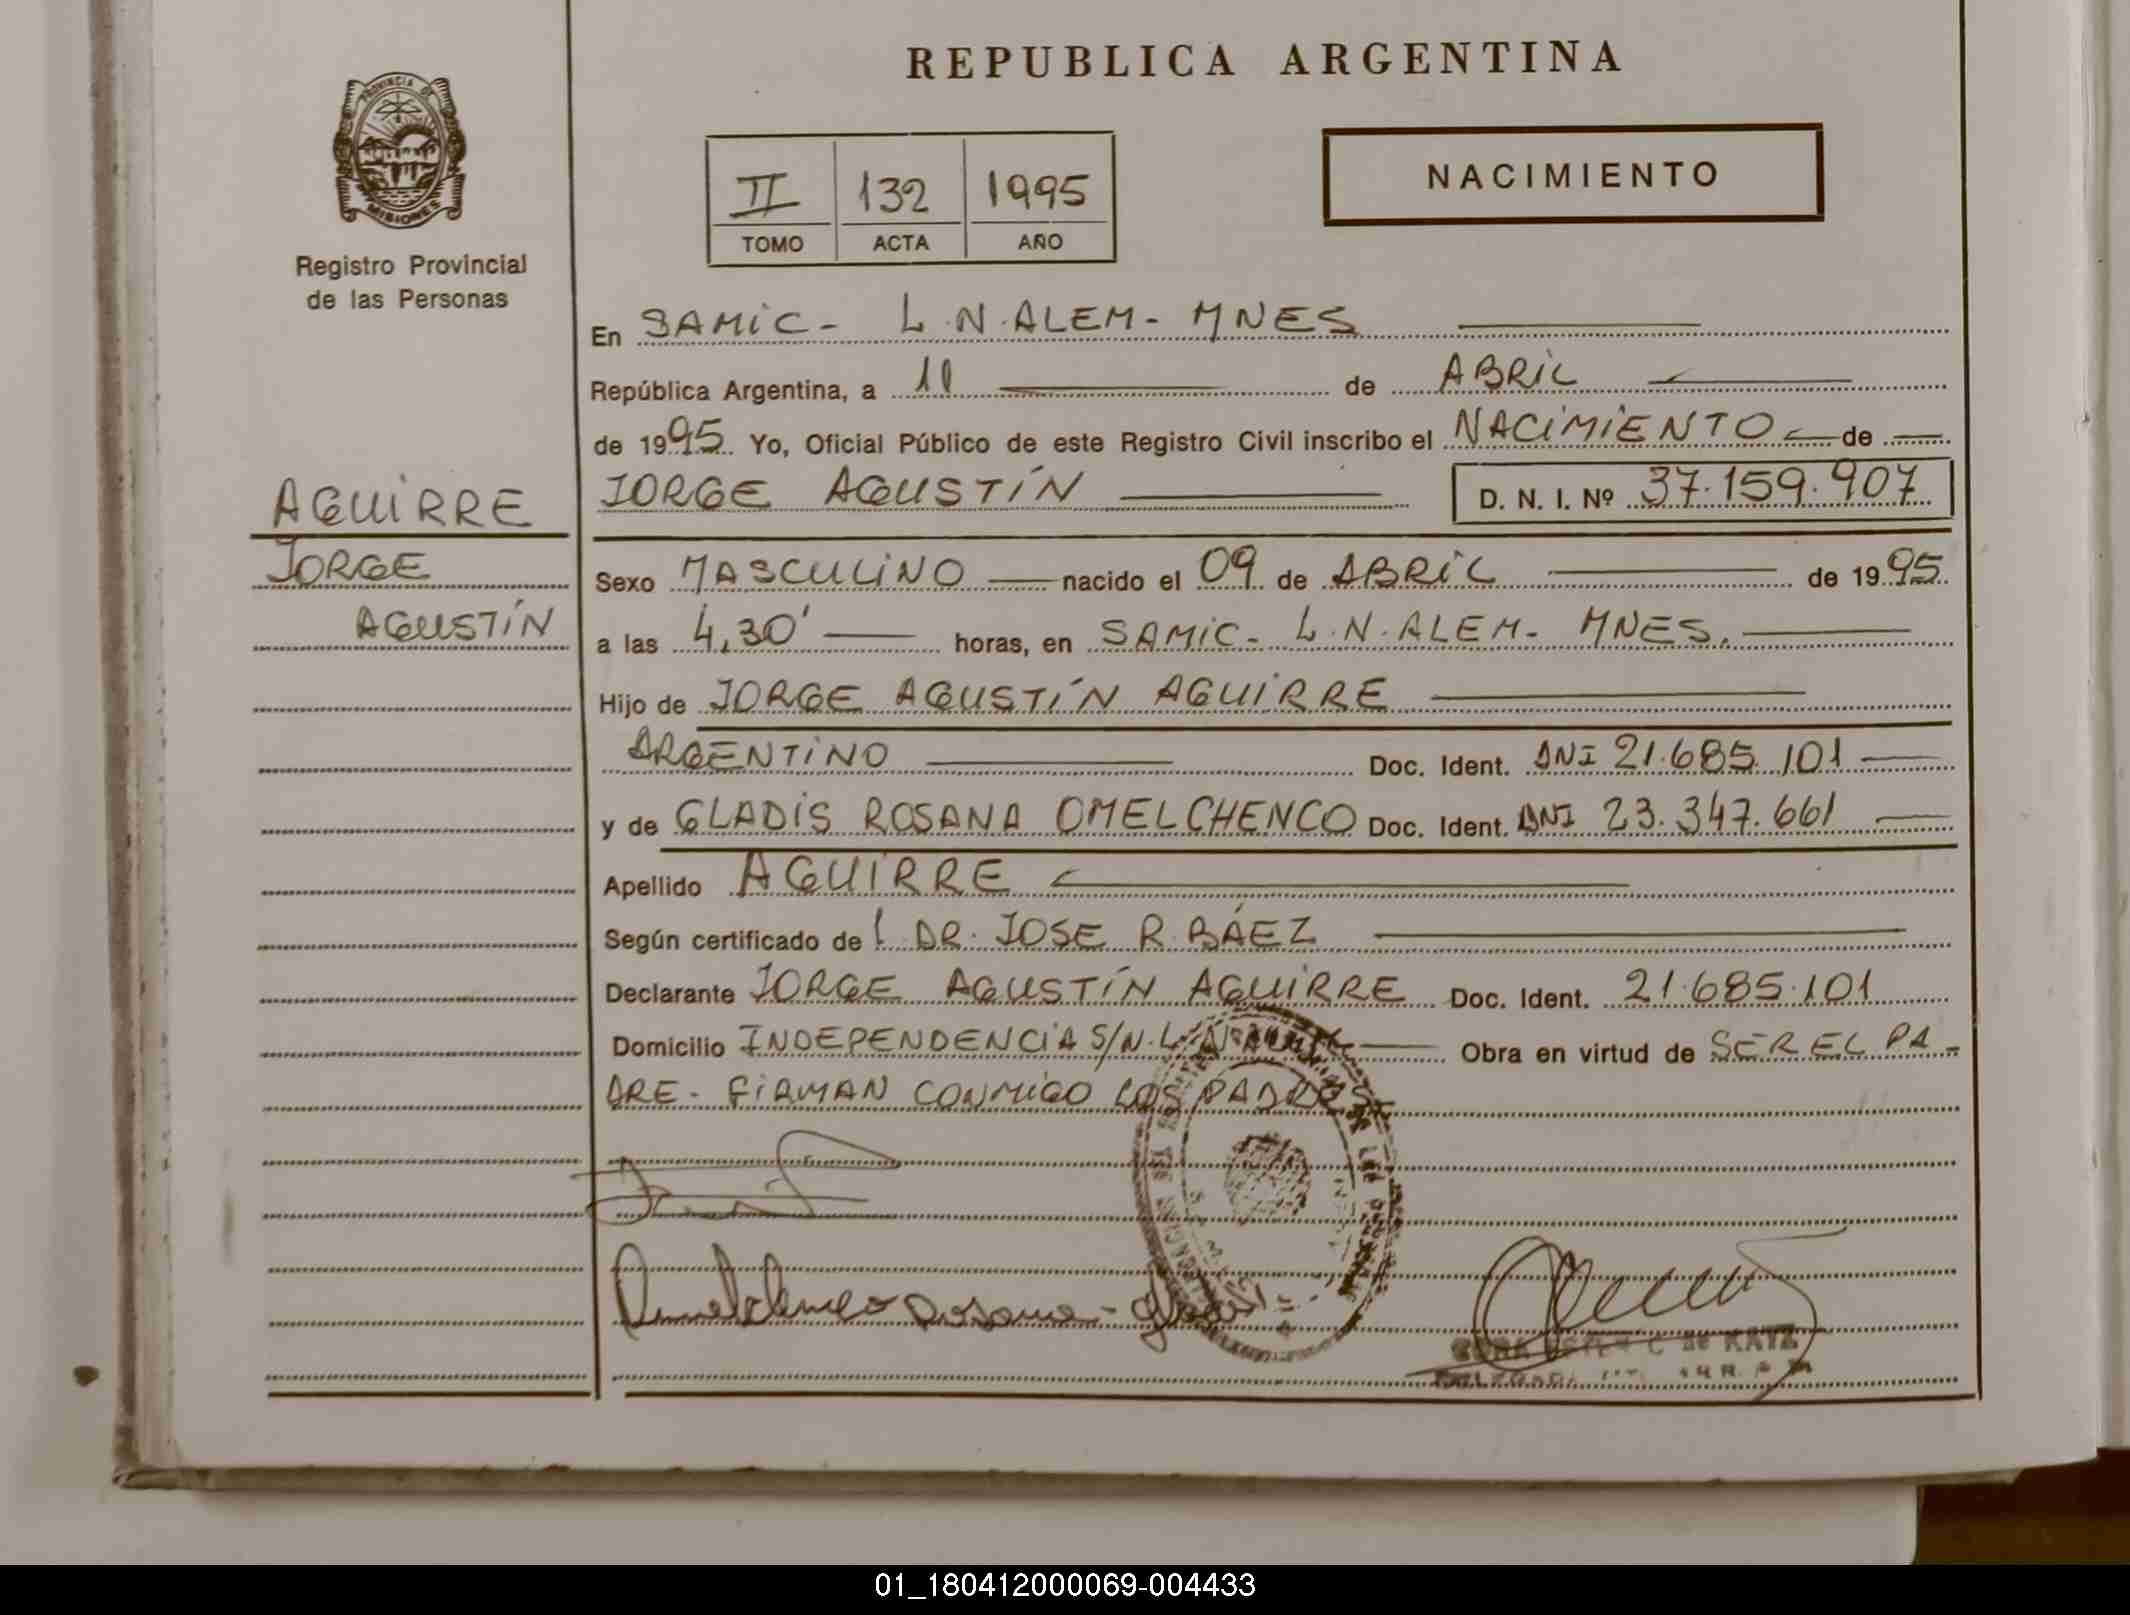 REPUBLICA ARGENTINA
PROVINCIA DE
MISIONES
Registro Provincial
de las Personas
II 132 1995
TOMO ACTA AÑO
NACIMIENTO
En SAMIC - L.N. ALEM - MNES
República Argentina, a de ABRIL
de 1995. Yo, Oficial Público de este Registro Civil inscribo el NACIMIENTO de
JORGE AGUSTÍN D. N. I. Nº 37.159.907
AGUIRRE
JORGE
AGUSTÍN
Sexo MASCULINO nacido el 09 de ABRIL de 1995.
a las 4,30' horas, en SAMIC - L.N. ALEM - MNES.
Hijo de JORGE AGUSTÍN AGUIRRE
ARGENTINO Doc. Ident. DNI 21.685.101
y de GLADIS ROSANA OMELCHENCO Doc. Ident. DNI 23.347.661
Apellido AGUIRRE
Según certificado de DR. JOSE R. BÁEZ
Declarante JORGE AGUSTÍN AGUIRRE Doc. Ident. 21.685.101
Domicilio INDEPENDENCIA S/N. L.N. Obra en virtud de SER EL PA-
DRE - FIRMAN CONMIGO LOS PADRES
Omelchenco Rosana - Gladis
C de KATZ
01_180412000069-004433